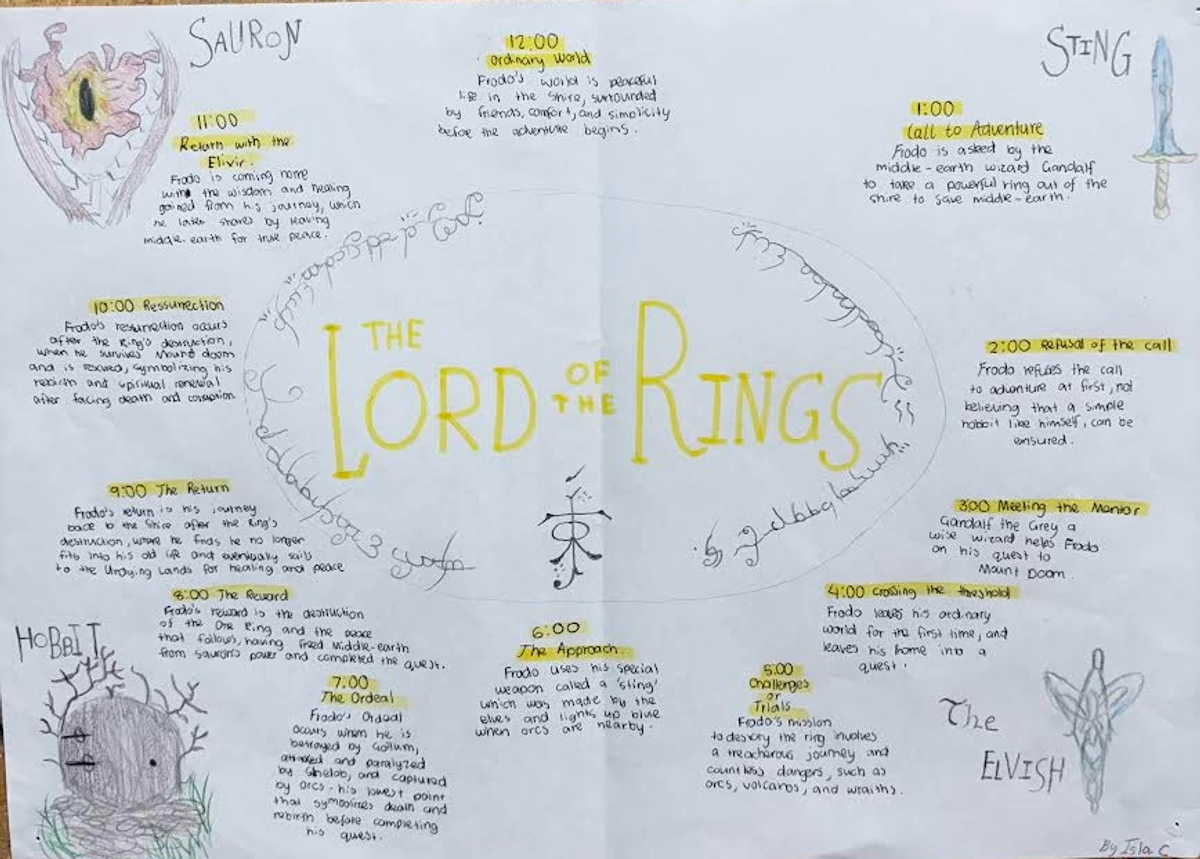 SAURON
12:00
Ordinary World
Frodo's world is peaceful
life in the Shire, surrounded
by friends, comfort, and simplicity
before the adventure begins.
STING
1:00
Call to Adventure
Frodo is asked by the
middle-earth wizard Gandalf
to take a powerful ring out of the
shire to save middle-earth.
11:00
Return with the
Elixir.
Frodo is coming home
with the wisdom and healing
gained from his journey, which
he later shares by leaving
middle-earth for true peace.
10:00 Ressurrection
Frodo's resurrection occurs
after the Ring's destruction,
when he survives Mount doom
and is rescued, symbolizing his
rebirth and spiritual renewal
after facing death and corruption
THE
LORD OF THE RINGS
2:00 Refusal of the call
Frodo refuses the call
to adventure at first, not
believing that a simple
hobbit like himself, can be
ensured.
3:00 Meeting the Mentor
Gandalf the Grey a
wise wizard helps Frodo
on his quest to
Mount Doom.
9:00 The Return
Frodo's return is his journey
back to the Shire after the Ring's
destruction, where he finds he no longer
fits into his old life and eventually sails
to the Undying Lands for healing and peace
8:00 The Reward
Frodo's reward is the destruction
of the One Ring and the peace
that follows, having freed Middle-earth
from Sauron's power and completed the quest.
4:00 Crossing the threshold
Frodo leaves his ordinary
world for the first time, and
leaves his home into a
quest.
HOBBIT
7:00
The Ordeal
Frodo's Ordeal
occurs when he is
betrayed by Gollum,
attacked and paralyzed
by Shelob, and captured
by orcs - his lowest point
that symbolizes death and
rebirth before completing
his quest.
6:00
The Approach.
Frodo uses his special
weapon called a 'sting'
which was made by the
elves and lights up blue
when orcs are nearby.
5:00
Challenges
or
Trials
Frodo's mission
to destroy the ring involves
a treacherous journey and
countless dangers, such as
orcs, volcanos, and wraiths.
The
ELVISH
By Isla C